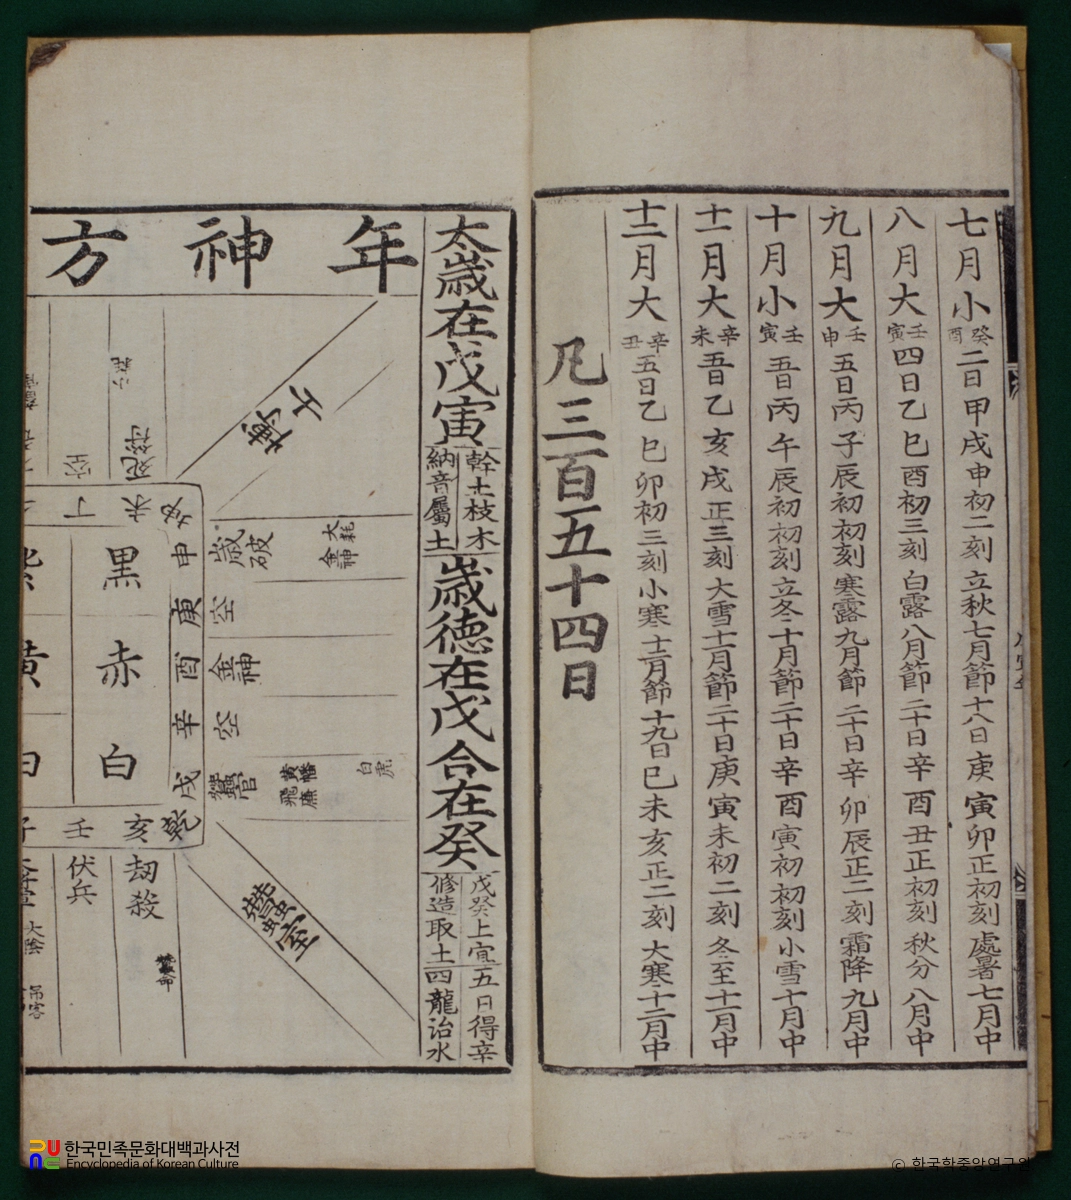 七月小 癸酉 二日甲戌申初二刻立秋七月節十八日庚寅卯正初刻處暑七月中
八月大 壬寅 四日乙巳酉初三刻白露八月節二十日辛酉丑正初刻秋分八月中
九月大 壬申 五日丙子辰初初刻寒露九月節二十日辛卯辰正二刻霜降九月中
十月小 壬寅 五日丙午辰初初刻立冬十月節二十日辛酉寅初初刻小雪十月中
十一月大 辛未 五日乙亥戌正三刻大雪十一月節二十日庚寅未初二刻冬至十一月中
十二月大 辛丑 五日乙巳卯初三刻小寒十二月節十九日己未亥正二刻大寒十二月中
凡三百五十四日
太歲在戊寅 幹土枝木 納音屬土 歲德在戊合在癸 戊癸上宜 修造取土 五日得辛 四龍治水
年神方
小耗
死符
空
丁
未
坤
申
庚
酉
辛
戌
乾
亥
壬
子
黑
赤
白
黃
歲破
大耗
金神
空
金神
空
蠶官
黃幡
飛廉
白虎
蠶室
劫殺
伏兵
大陰
吊客
蠶命
한국민족문화대백과사전
Encyclopedia of Korean Culture
© 한국학중앙연구원